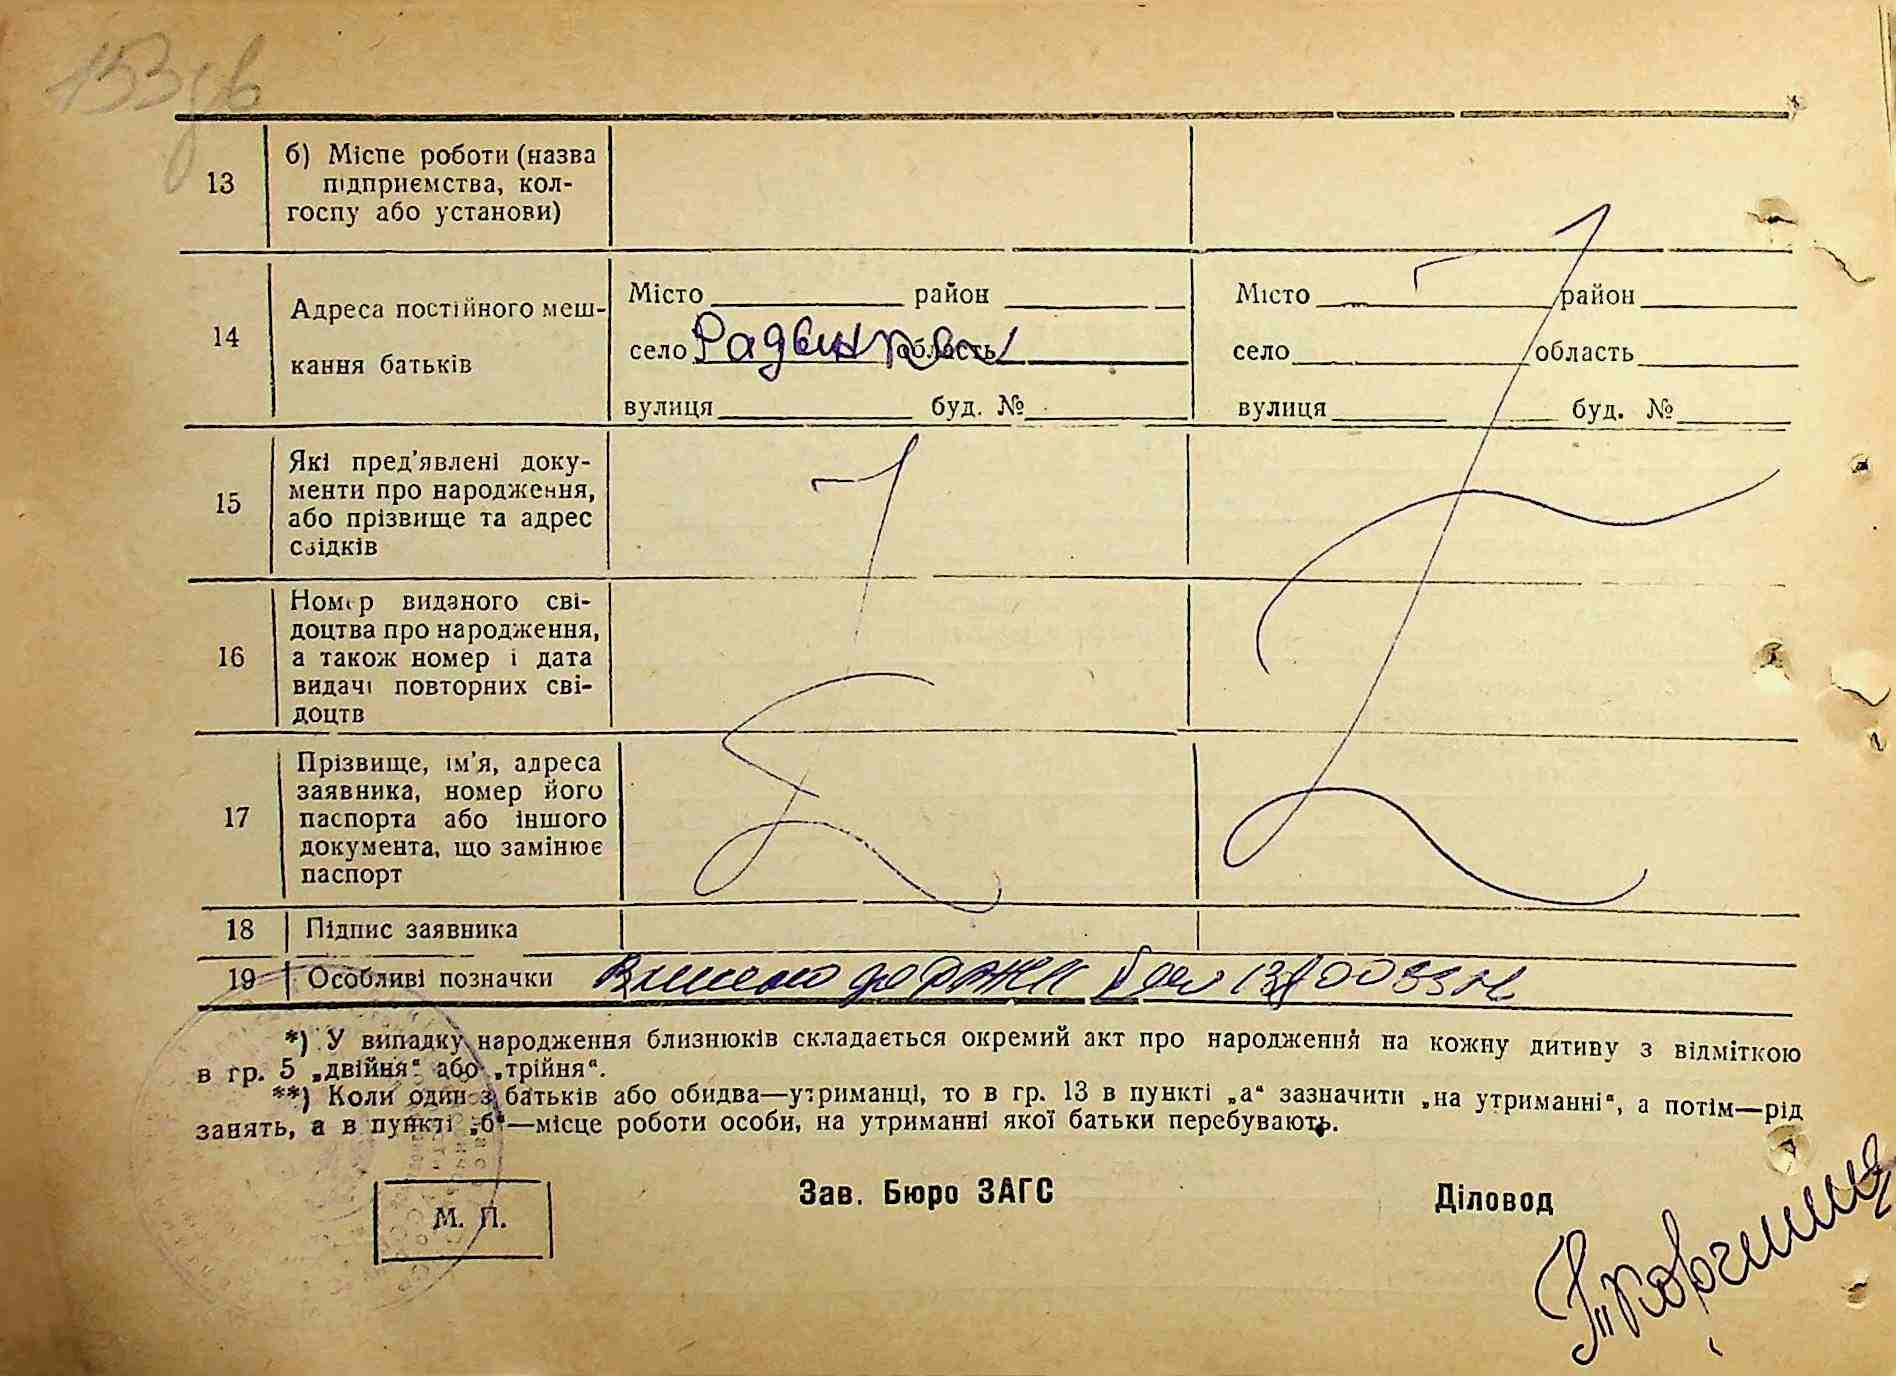 153 зв
13
б) Місце роботи (назва
підприємства, кол-
госпу або установи)
14
Адреса постійного меш-
кання батьків
Місто район
село Радвинка область
вулиця буд. №
Місто район
село область
вулиця буд. №
15
Які пред'явлені доку-
менти про народження,
або прізвище та адрес
свідків
16
Номер виданого сві-
доцтва про народження,
а також номер і дата
видачі повторних сві-
доцтв
17
Прізвище, ім'я, адреса
заявника, номер його
паспорта або іншого
документа, що замінює
паспорт
18 Підпис заявника
19 Особливі позначки
*) У випадку народження близнюків складається окремий акт про народження на кожну дитину з відміткою
в гр. 5 „двійня“ або „трійня“.
**) Коли один з батьків або обидва—утриманці, то в гр. 13 в пункті „а“ зазначити „на утриманні“, а потім—рід
занять, а в пункті „б“—місце роботи особи, на утриманні якої батьки перебувають.
М. П.
Зав. Бюро ЗАГС
Діловод